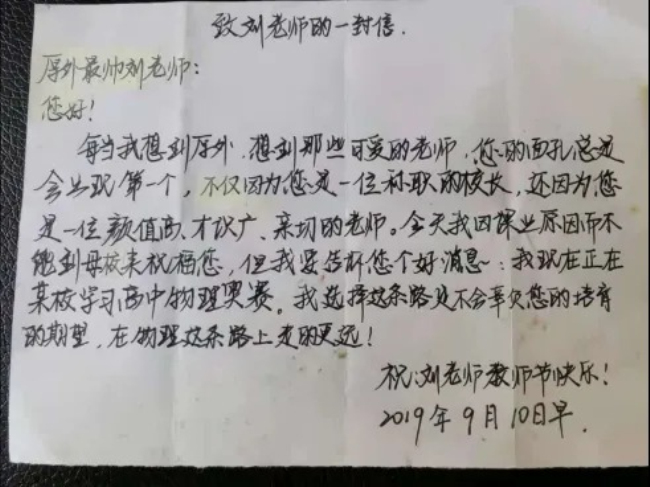 致刘老师的一封信.
厚外最帅刘老师:
您好!
每当我想到厚外,想到那些可爱的老师,您的面孔总是
会出现第一个,不仅因为您是一位称职的校长,还因为您
是一位颜值高、才识广、亲切的老师。今天我因课业原因而不
能到母校来祝福您,但我要告诉您个好消息~:我现在正在
某校学习高中物理奥赛。我选择这条路定不会辜负您的培育
的期望,在物理这条路上走的更远!
祝:刘老师教师节快乐!
2019年9月10日早.